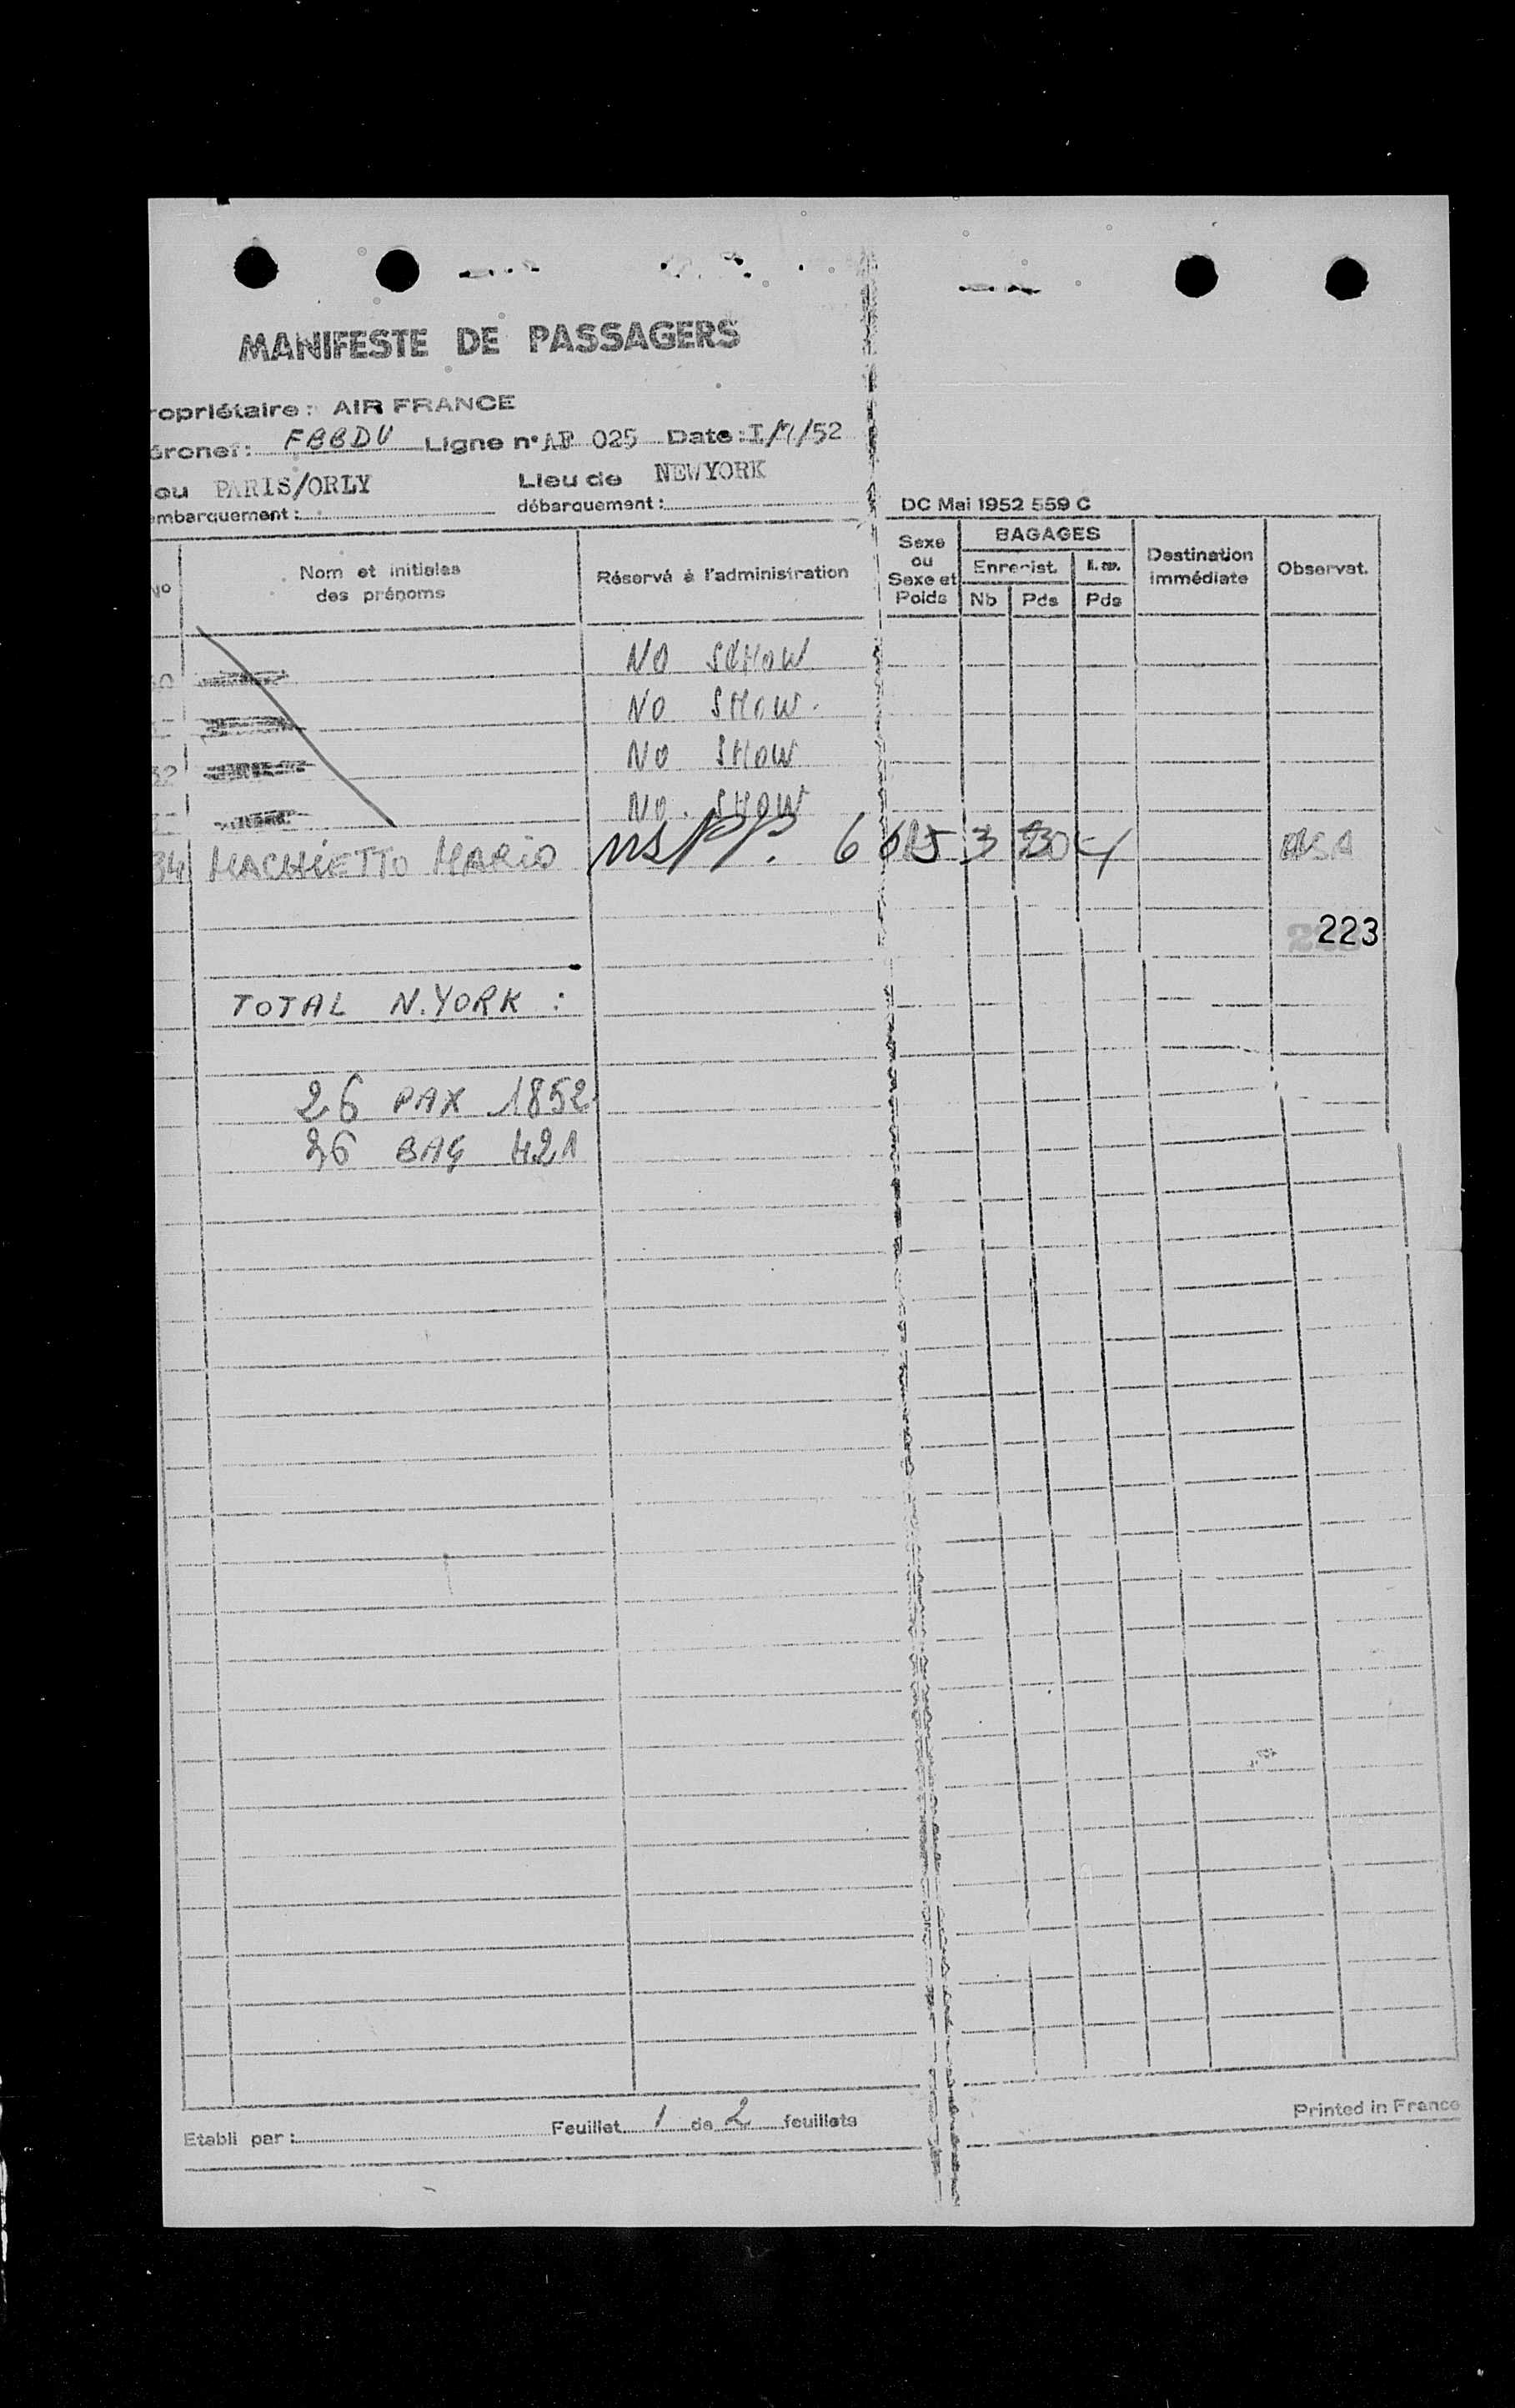 MANIFESTE DE PASSAGERS
ropriétaire: AIR FRANCE
éronef: FBBDU Ligne n° AF 025 Date: I/7/52
ieu PARIS/ORLY Lieu de NEWYORK
embarquement: débarquement:
DC Mai 1952 559 C
No Nom et initiales des prénoms Réservé à l'administration Sexe ou Sexe et Poids BAGAGES Enregist. Nb Pds Pds Destination immédiate Observat.
NO SCHOW
NO SHOW.
NO SHOW
32
NO. SHOW
34 MACHIETTO MARIO 3 30 4
223
TOTAL N.YORK :
26 PAX 1852
26 BAG 421
Etabli par: Feuillet 1 de 2 feuillets
Printed in France